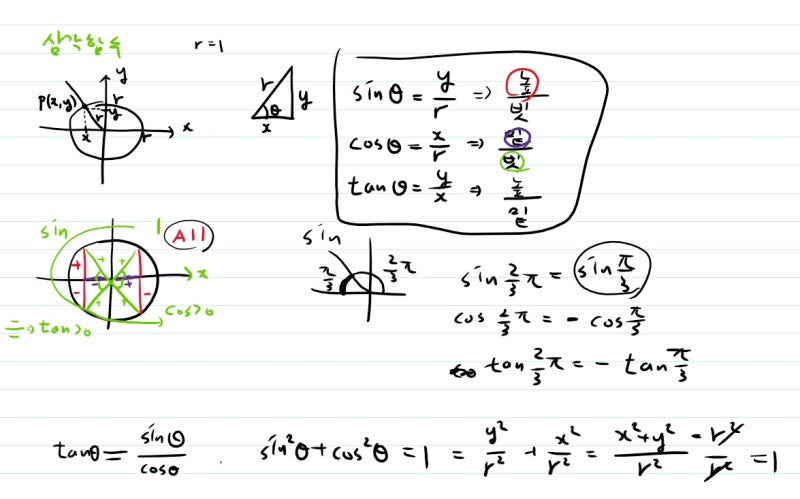 삼각함수
r=1
y
P(x,y)
r
y
r
x
r
x
r
y
θ
x
sinθ = y/r => 높이/빗변
cosθ = x/r => 밑변/빗변
tanθ = y/x => 높이/밑변
sin
All
x
cos>0
tan>0
sin
π/3
2/3 π
sin 2/3 π = sin π/3
cos 2/3 π = - cos π/3
tan 2/3 π = - tan π/3
tanθ = sinθ/cosθ .
sin²θ + cos²θ = 1 = y²/r² + x²/r² = x²+y²/r² = r²/r² = 1